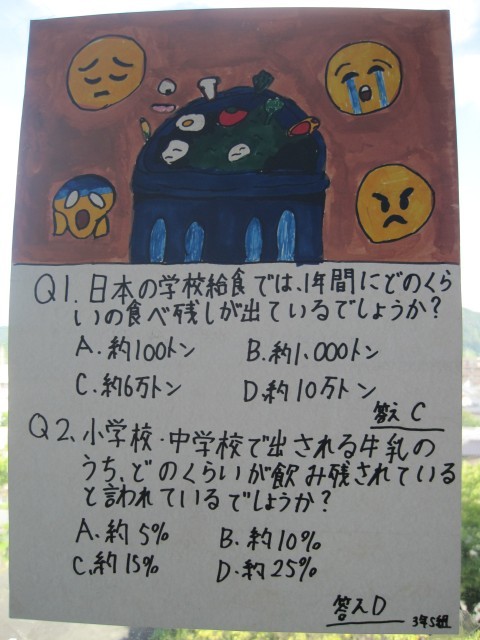 Q1. 日本の学校給食では、1年間にどのくら
いの食べ残しが出ているでしょうか?
A. 約100トン B. 約1,000トン
C. 約6万トン D. 約10万トン
答え C
Q2. 小学校・中学校で出される牛乳の
うち、どのくらいが飲み残されている
と言われているでしょうか?
A. 約5% B. 約10%
C. 約15% D. 約25%
答え D
3年5組